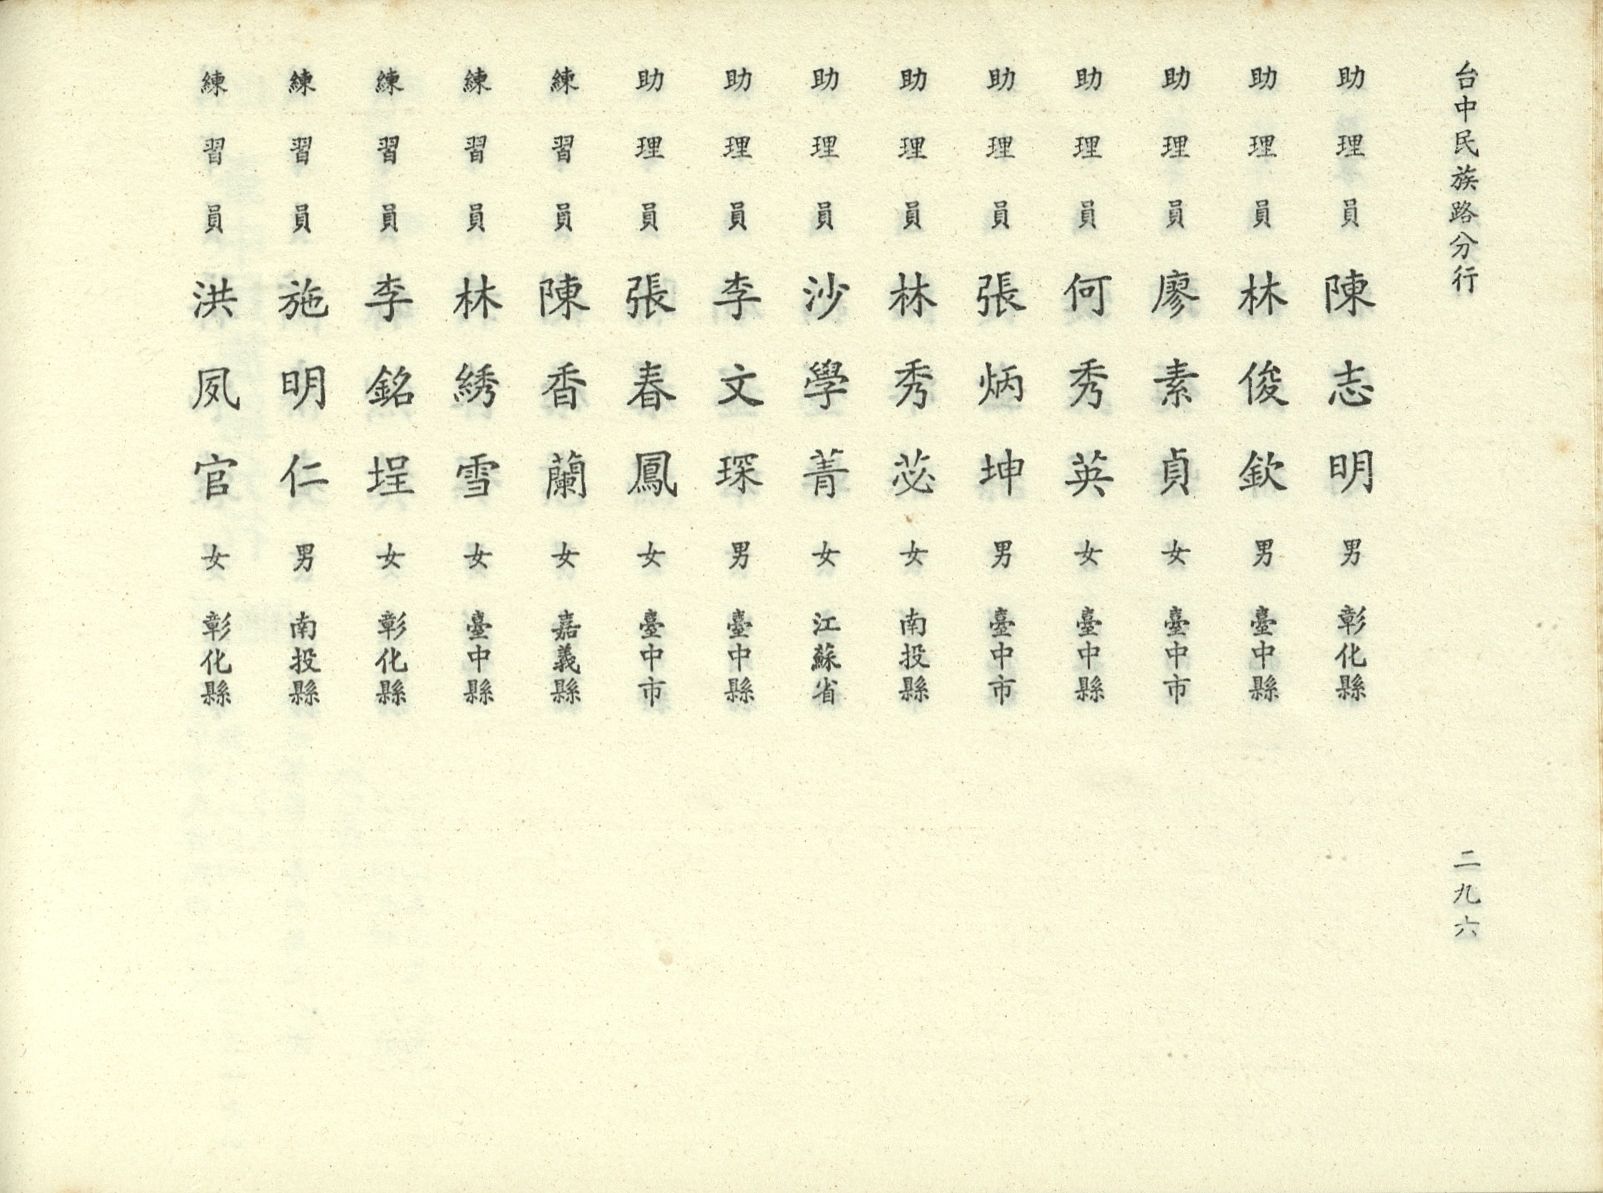 台中民族路分行
二九六
助理員 陳志明 男 彰化縣
助理員 林俊欽 男 臺中縣
助理員 廖素貞 女 臺中市
助理員 何秀英 女 臺中縣
助理員 張炳坤 男 臺中市
助理員 林秀苾 女 南投縣
助理員 沙學菁 女 江蘇省
助理員 李文琛 男 臺中縣
助理員 張春鳳 女 臺中市
練習員 陳香蘭 女 嘉義縣
練習員 林綉雪 女 臺中縣
練習員 李銘埕 女 彰化縣
練習員 施明仁 男 南投縣
練習員 洪夙官 女 彰化縣